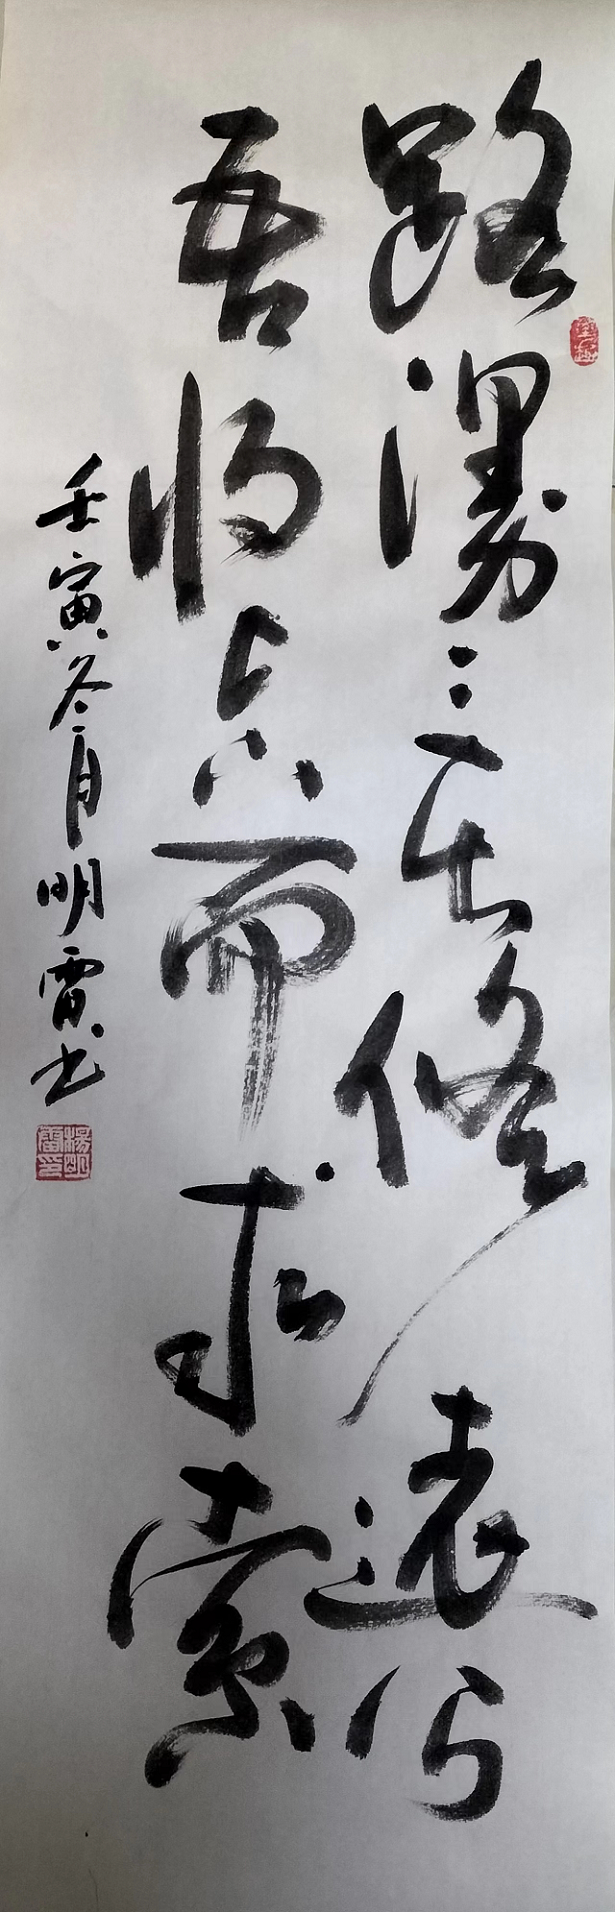 路漫漫其修遠兮
吾将上下而求索
壬寅冬月明雷书
楊明雷印